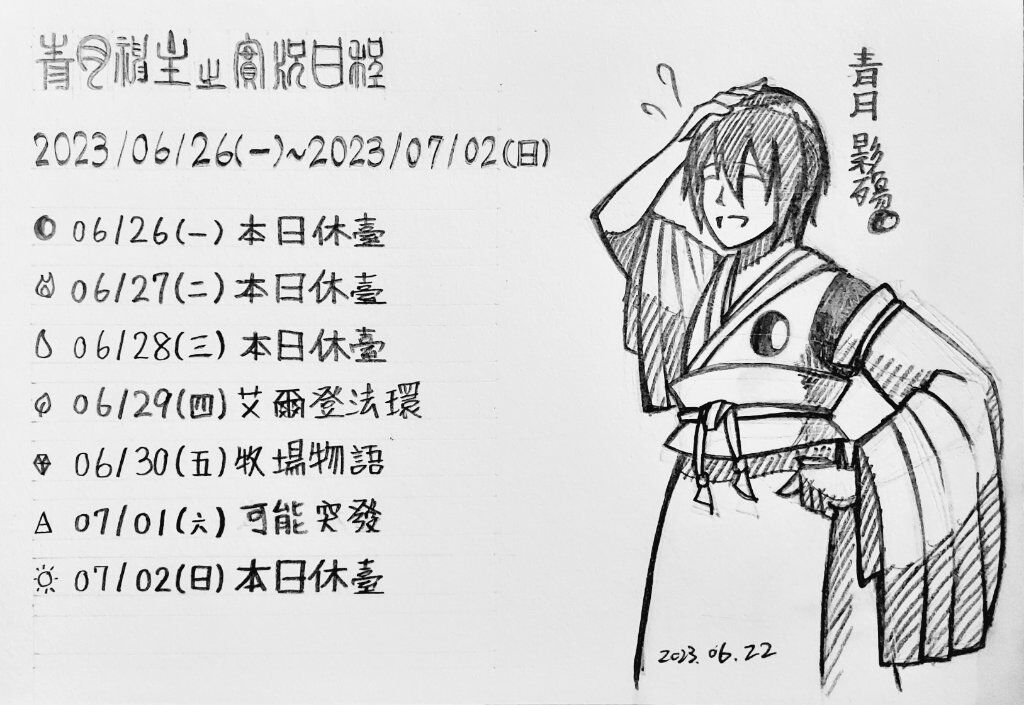 青月之實況日程
2023/06/26(一)~2023/07/02(日)
06/26(一) 本日休臺
06/27(二) 本日休臺
06/28(三) 本日休臺
06/29(四) 艾爾登法環
06/30(五) 牧場物語
07/01(六) 可能突發
07/02(日) 本日休臺
青月 影殤
2023.06.22